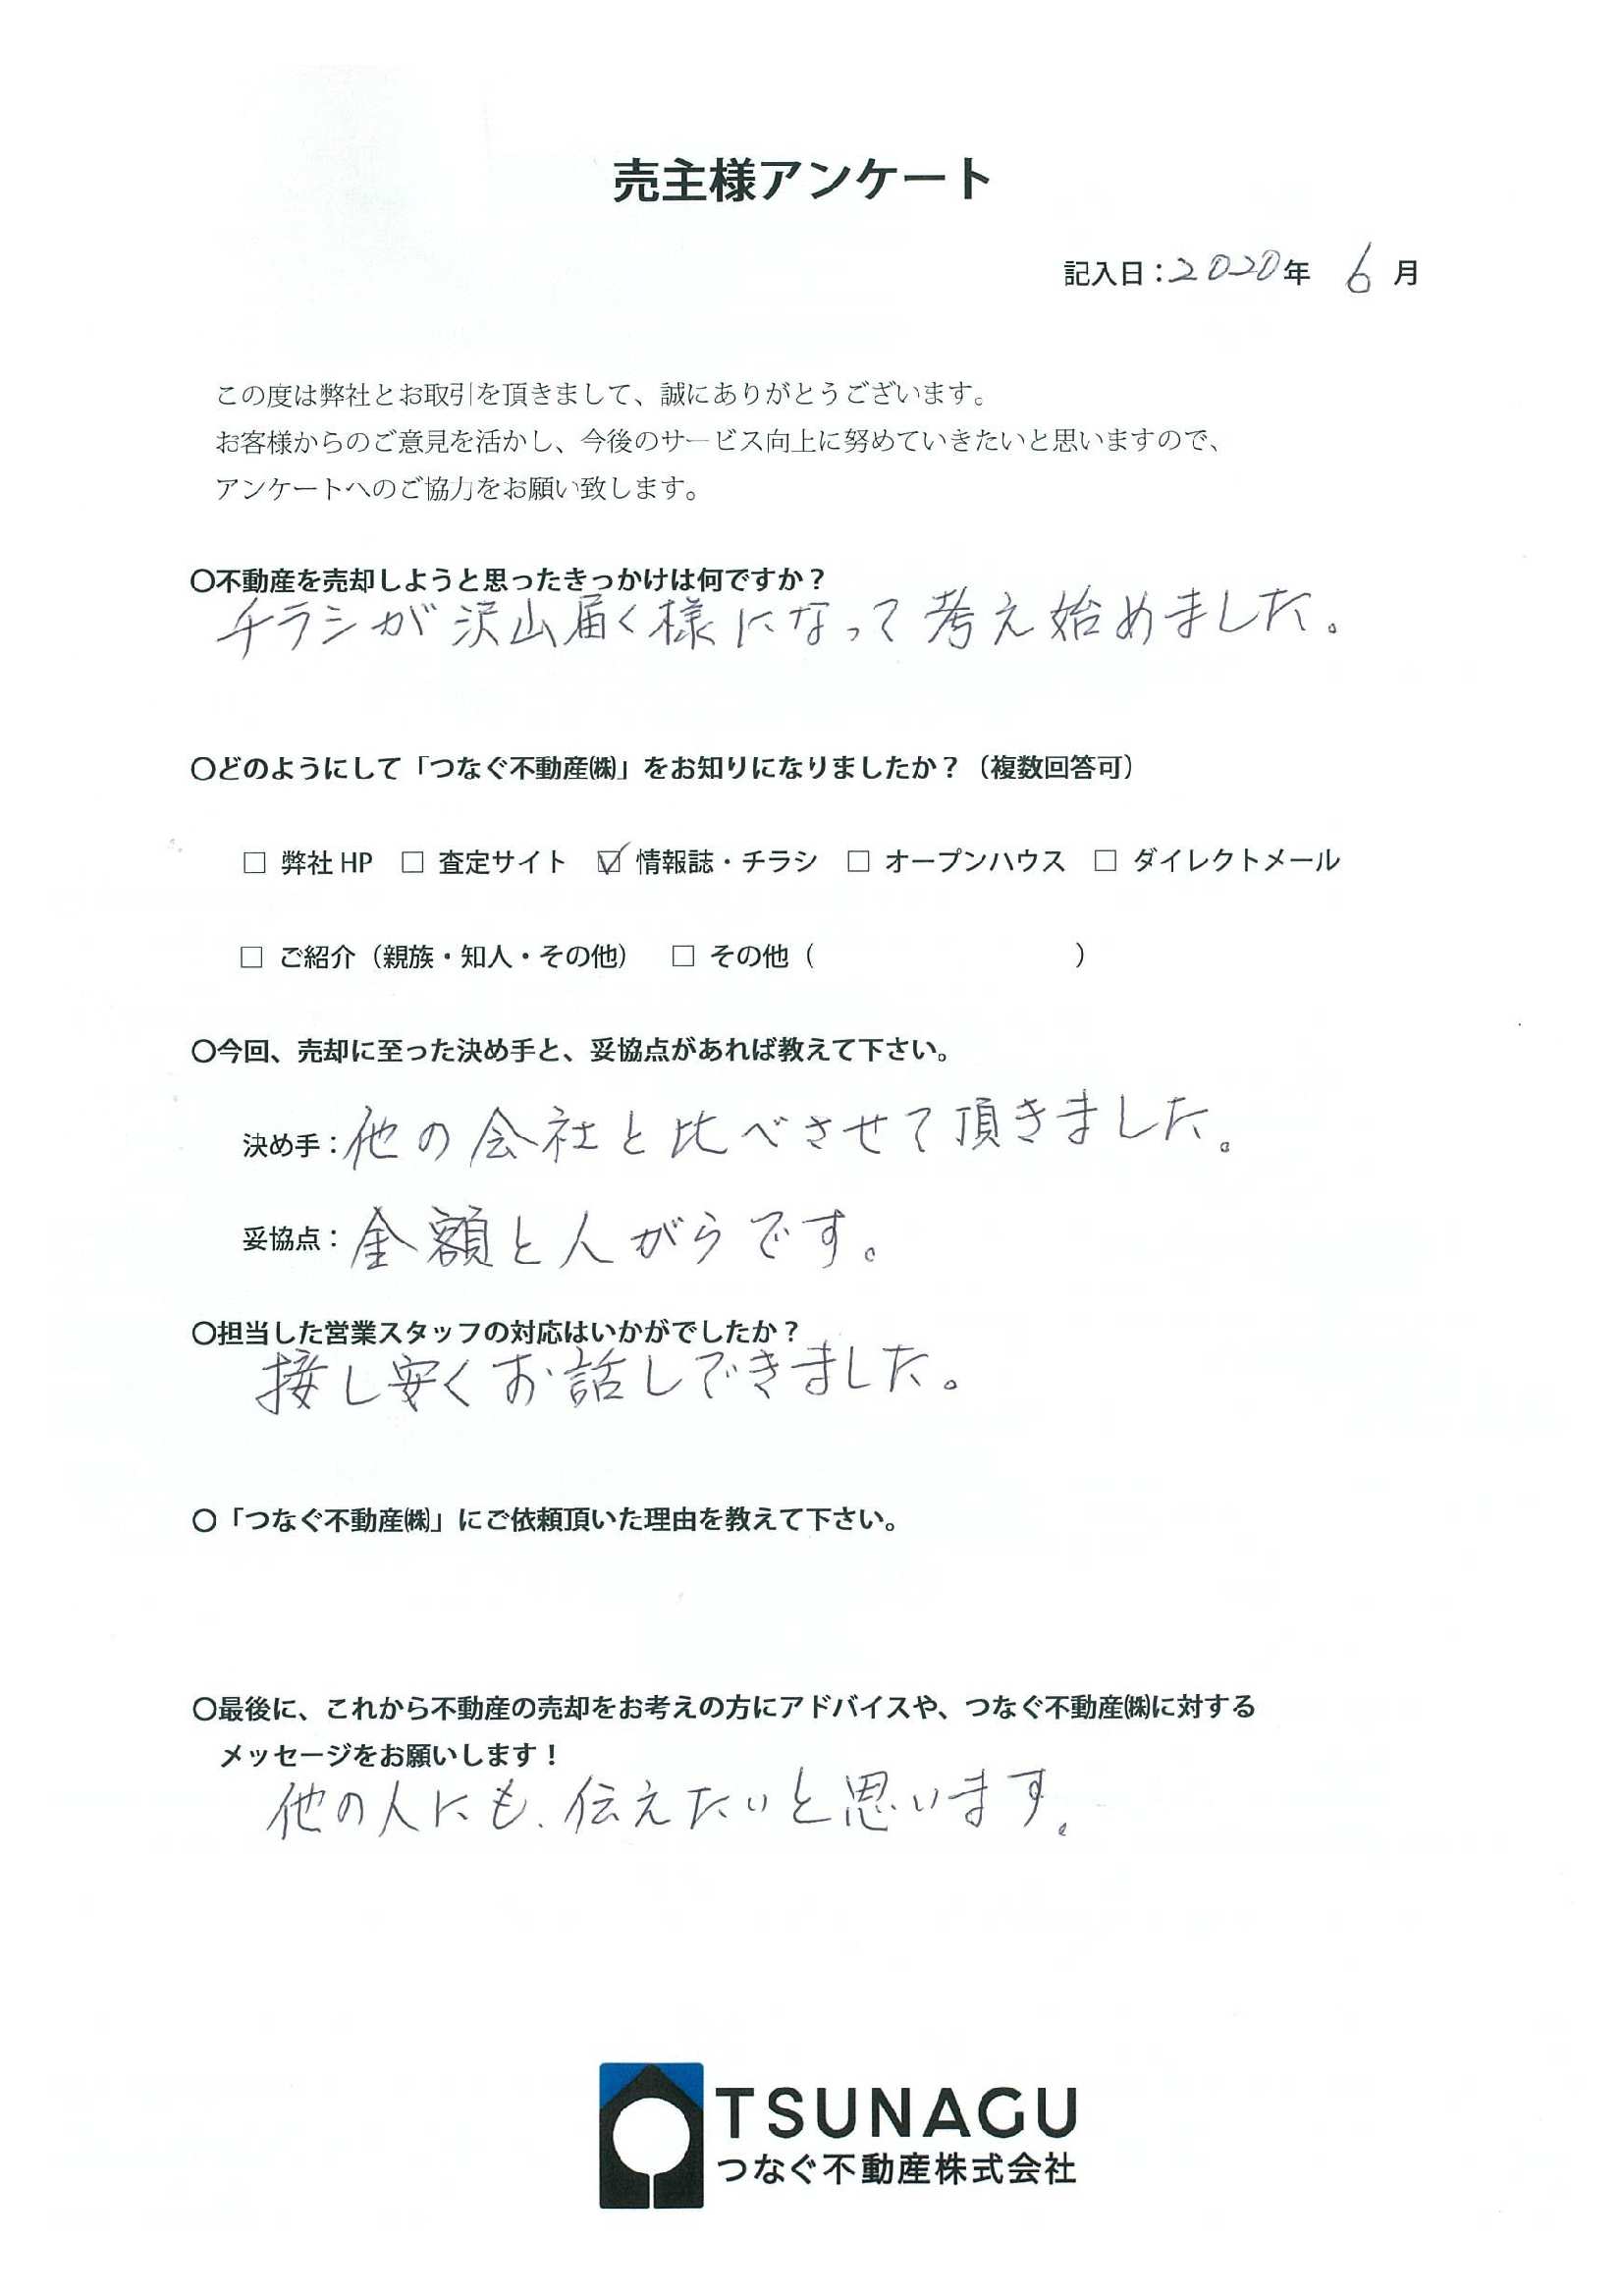 売主様アンケート
記入日：2020年 6月
この度は弊社とお取引を頂きまして、誠にありがとうございます。
お客様からのご意見を活かし、今後のサービス向上に努めていきたいと思いますので、
アンケートへのご協力をお願い致します。
〇不動産を売却しようと思ったきっかけは何ですか？
チラシが沢山届く様になって考え始めました。
〇どのようにして「つなぐ不動産㈱」をお知りになりましたか？（複数回答可）
□ 弊社 HP □ 査定サイト ☑ 情報誌・チラシ □ オープンハウス □ ダイレクトメール
□ ご紹介（親族・知人・その他） □ その他（ ）
〇今回、売却に至った決め手と、妥協点があれば教えて下さい。
決め手：他の会社と比べさせて頂きました。
妥協点：金額と人がらです。
〇担当した営業スタッフの対応はいかがでしたか？
接し安くお話しできました。
〇「つなぐ不動産㈱」にご依頼頂いた理由を教えて下さい。
〇最後に、これから不動産の売却をお考えの方にアドバイスや、つなぐ不動産㈱に対する
メッセージをお願いします！
他の人にも、伝えたいと思います。
TSUNAGU
つなぐ不動産株式会社